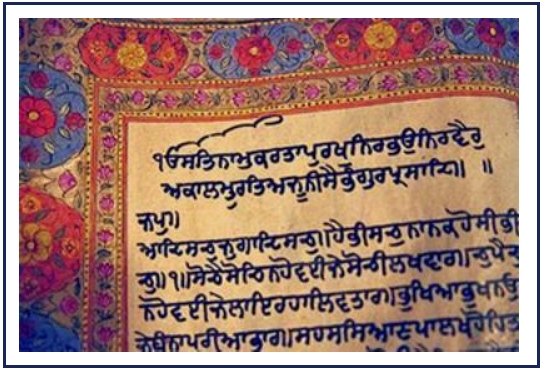 ੴਸਤਿਨਾਮੁਕਰਤਾਪੁਰਖੁਨਿਰਭਉਨਿਰਵੈਰੁ
ਅਕਾਲਮੂਰਤਿਅਜੂਨੀਸੈਭੰਗੁਰਪ੍ਰਸਾਦਿ॥ ॥
ਜਪੁ॥
ਆਦਿਸਚੁਜੁਗਾਦਿਸਚੁ॥ਹੈਭੀਸਚੁਨਾਨਕਹੋਸੀਭੀ
ਚੁ॥੧॥ਸੋਚੈਸੋਚਿਨਹੋਵਈਜੇਸੋਚੀਲਖਵਾਰ॥ਚੁਪੈਚ
ਨਹੋਵਈਜੇਲਾਇਰਹਾਲਿਵਤਾਰ॥ਭੁਖਿਆਭੁਖਨਉ
ਜੇਬੰਨਾਪੁਰੀਆਭਾਰ॥ਸਹਸਸਿਆਣਪਾਲਖਹੋਹਿਤ